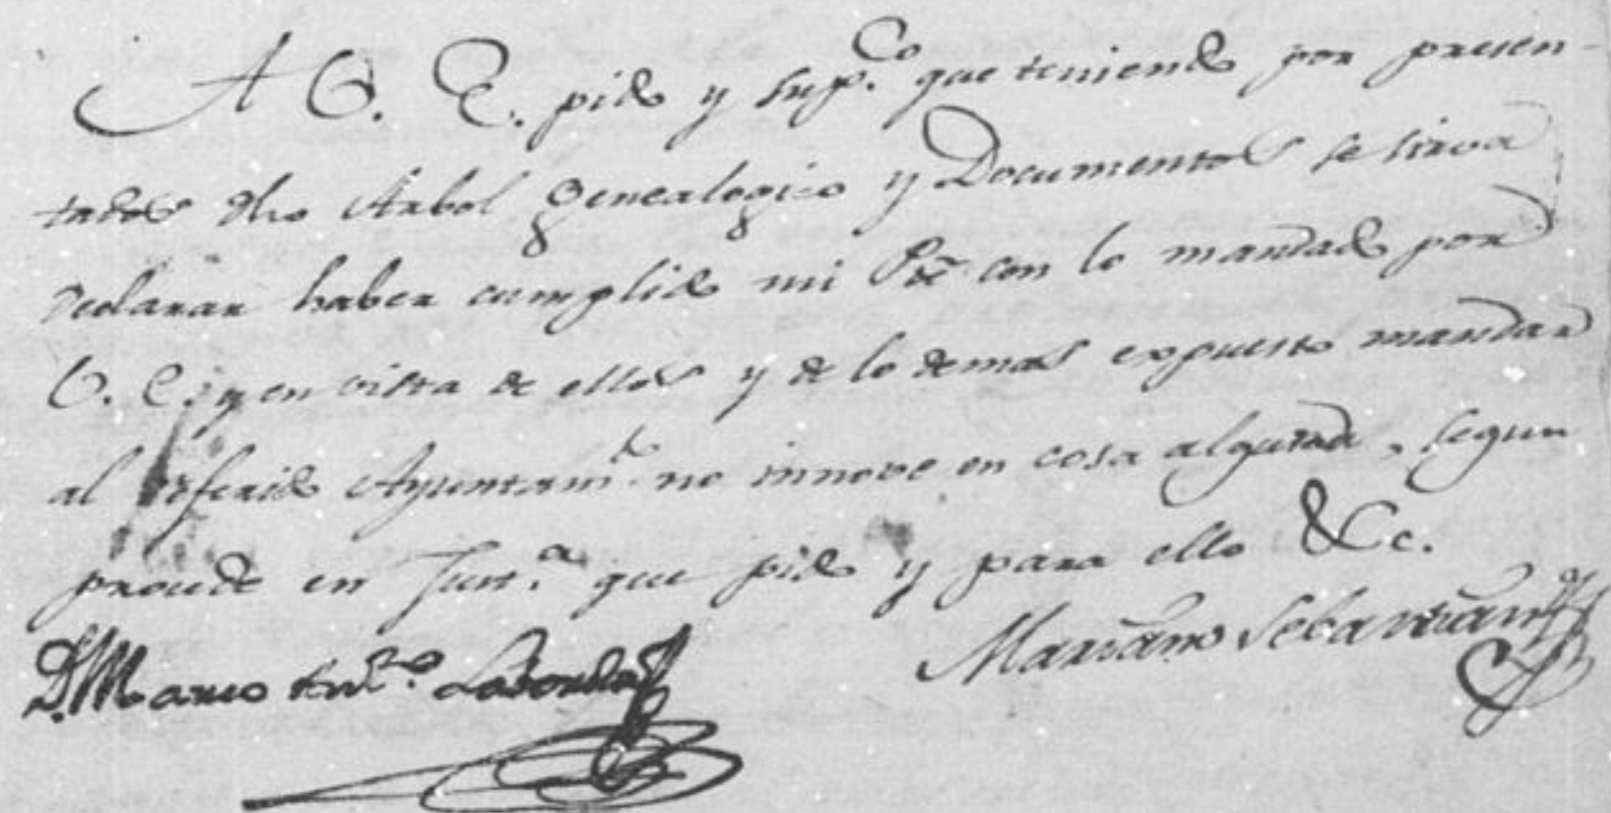 A V. E. pido y sup.co que teniendo por presen-
tados dho Arbol genealogico y Documentos se sirva
declarar haber cumplido mi Pte con lo mandado por
V. E. y en vista de ellos y de lo demas expuesto mandar
al referido Ayuntamto no innove en cosa alguna, segun
procede en Just.a que pido y para ello &c.
D. Marco Anto Laborda
Mariano Sebastian